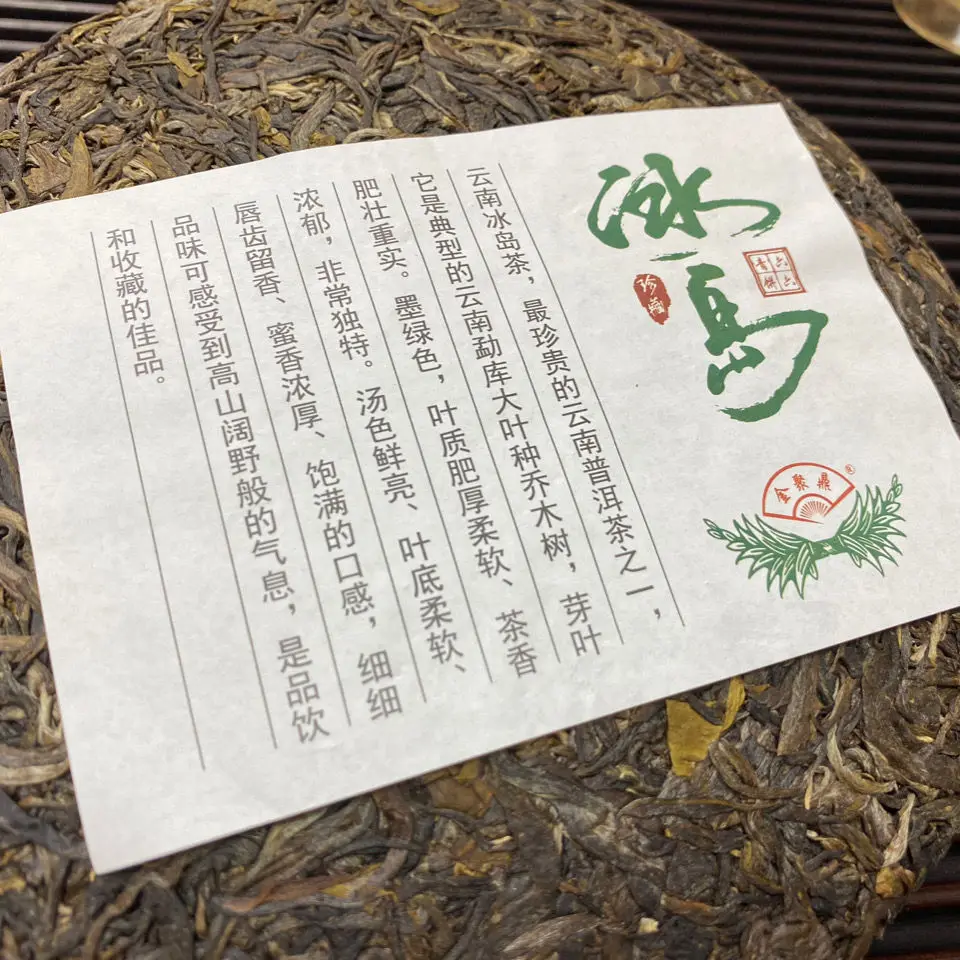 冰岛
六六
青饼
珍藏
金聚鼎®
云南冰岛茶，最珍贵的云南普洱茶之一，
它是典型的云南勐库大叶种乔木树，芽叶
肥壮重实。墨绿色，叶质肥厚柔软、茶香
浓郁，非常独特。汤色鲜亮、叶底柔软、
唇齿留香、蜜香浓厚、饱满的口感，细细
品味可感受到高山阔野般的气息，是品饮
和收藏的佳品。